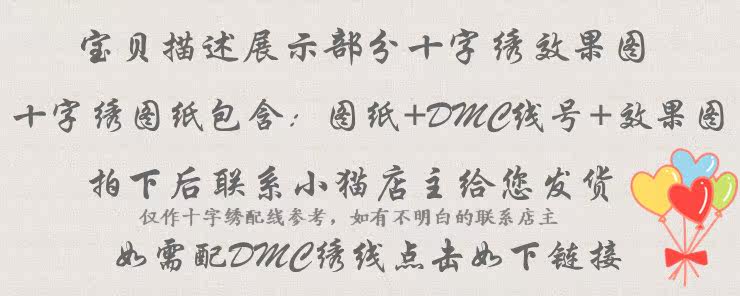 宝贝描述展示部分十字绣效果图
十字绣图纸包含：图纸+DMC线号+效果图
拍下后联系小猫店主给您发货
仅作十字绣配线参考，如有不明白的联系店主
如需配DMC绣线点击如下链接